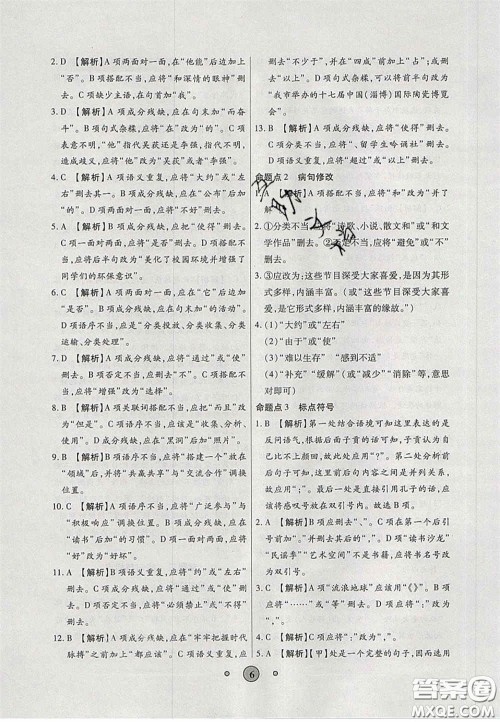 2. D 【解析】A 项两面对一面,在“他能”后加上
“否”。B 项搭配不当,应将“和深情的眼神”删
去。C 项缺少主语,在句首加“我”。
3. D 【解析】A 项成分残缺,应在句末加“而奋
斗”。B 项句式杂糅,应将“在”改为“是”。C 项表
意不明,“他”指代吴荻还是李强,指代吴荻应将
“他”改为“吴荻”,指代李强应将“他”改为“李强”。
4. D 【解析】A 项语义重复,应将“大约”或“左
右”删去。B 项成分残缺,应在“公布”后加“的”
字。C 项否定不当,应将“不好”删去。
5. A 【解析】B 项成分残缺,应将“在”或“下”删
去。C 项一面对两面,应将“能否”删去。D 项搭
配不当,应将后半句改为“美化了校园环境并增强了
同学们的环保意识”。
6. C 【解析】A 项两面对一面,应在“它”后加“是
否”。B 项成分残缺,应在句末加“的活动”。
D 项语序不当,应是“分类投放、分类收集、分类
运输、分类处理”。
7. D 【解析】A 项成分残缺,应将“通过”或“使”删
去。B 项两面对一面,应将“能否”删去。C 项搭
配不当,应将“增强”改为“选择”。
8. B 【解析】A 项关联词搭配不当,应把“而且”改
为“但是”。C 项语序不当,应改为“收集、分析、
运用”。D 项成分残缺,应在“黑洞”后加“照片”。
9. C 【解析】A 项搭配不当,应将“一起”放在“做”
前。B 项成分残缺,应将“使”删去。D 项语序不
当,应将“广泛参与”与
“领域”后,并将“共赢共享”与“交流合作”调换
位置。
10. A 【解析】B 项语序不当,应将“广泛参与”与
“积极响应”调换位置。C 项成分残缺,应在
“读书”后加“的习惯”。D 项一面对两面,应将
“好”改为“好坏”。
11. A 【解析】B 项语义重复,应将“约”或“左右”
删去。C 项成分残缺,应将“通过”或“使”删去。
D 项否定不当,应将“必须禁止”或“不得”删去。
12. B 【解析】A 项成分残缺,应在“牢牢把握时代
脉搏”之前加上“都应该”。C 项语义重复,应
删去“不少于”,并在“四成”前加上“占”;或删
去“以上”。D 项句式杂糅,应将前半句改为“我
市举办的十七届中国(淄博)国际陶瓷博览
会”。
13. B 【解析】A 项成分残缺,应将“使得”删去。
C 项分类不当,应将“、留学生哈通社”删去。
D 项语义重复,应将“超过”或“以上”删去。
命题点 2 病句修改
1. A 【解析】搭配不当,应将“和”改为“并了
解”。
2. ①分类不当,应将“诗歌、小说、散文和”或“和
文学作品”删去。②否定不当,应将“避免”或“不”
删去。
3. ③应改为:这些节目深受大家喜爱,是因为其形
式多样,内涵丰富。或:这些节目深受大家喜
爱,是其形式多样,内涵丰富的缘故。
4. (1)“大约”或“左右”
(2)“由于”或“使”
(3)“难以生存”“到不适”
(4)“补充”“缓解”(或“减少”“消除”等,意
思对即可)
命题点 3 标点符号
1. A 【解析】第一处结合语境可知表达的是
反问语气,根据后文可知表达的是不敢相信
自己比不上别人。因此应用“?”。第二处分析
前后句子可知前后内容之间是并列关系,
故应用“;”。最后是直接引用孔子的话,应
该将感叹号放在双引号内。故选 A。
2. A 【解析】B 项应删去“、”。C 项在第一个后引
号前加“。”,后引号后的“。”删去。D 项“读书沙龙”
“民谣季”“艺术空间”不是书籍,应将书名号改为
双引号。
3. B 【解析】A 项“流浪地球”应该用“《》”。C 项
应将“……”或“等”删去。D 项应将“。”改
为“,”。
4. C 【解析】A 项应将“:”改为“,”。B 项应将“?”
改为“,”。D 项应将“、”改为“,”。
5. A 【解析】【甲】处是一个完整的句子,应改为
6
答案圈
MXQE.COM